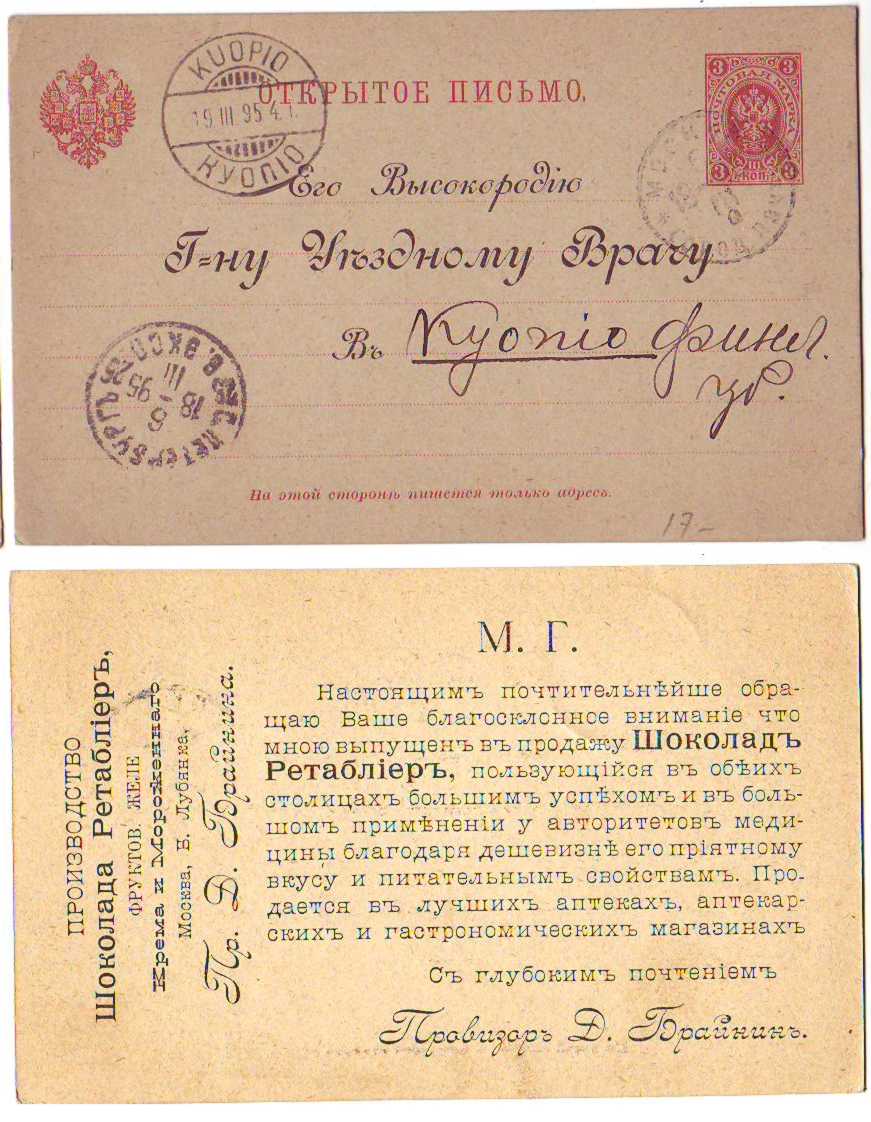 ОТКРЫТОЕ ПИСЬМО.
3 3
ПОЧТОВАЯ МАРКА
3 КОП. 3
KUOPIO
19 III 95 4.1.
КУОПІО
МОСКВА
Его Высокородію
Г=ну Уѣздному Врачу
Въ Куопіо Финл.
гб.
С. ПЕТЕРБУРГЪ
18 III 95
На этой сторонѣ пишется только адресъ.
17-
ПРОИЗВОДСТВО
Шоколада Ретабліеръ,
ФРУКТОВ. ЖЕЛЕ
Крема и Мороженнаго
Москва, Б. Лубянка,
Пр. Д. Брайнина.
М. Г.
Настоящимъ почтительнѣйше обра-
щаю Ваше благосклонное вниманіе что
мною выпущенъ въ продажу Шоколадъ
Ретабліеръ, пользующійся въ обѣихъ
столицахъ большимъ успѣхомъ и въ боль-
шомъ примѣненіи у авторитетовъ меди-
цины благодаря дешевизнѣ его пріятному
вкусу и питательнымъ свойствамъ. Про-
дается въ лучшихъ аптекахъ, аптекар-
скихъ и гастрономическихъ магазинахъ
Съ глубокимъ почтеніемъ
Провизоръ Д. Брайнинъ.